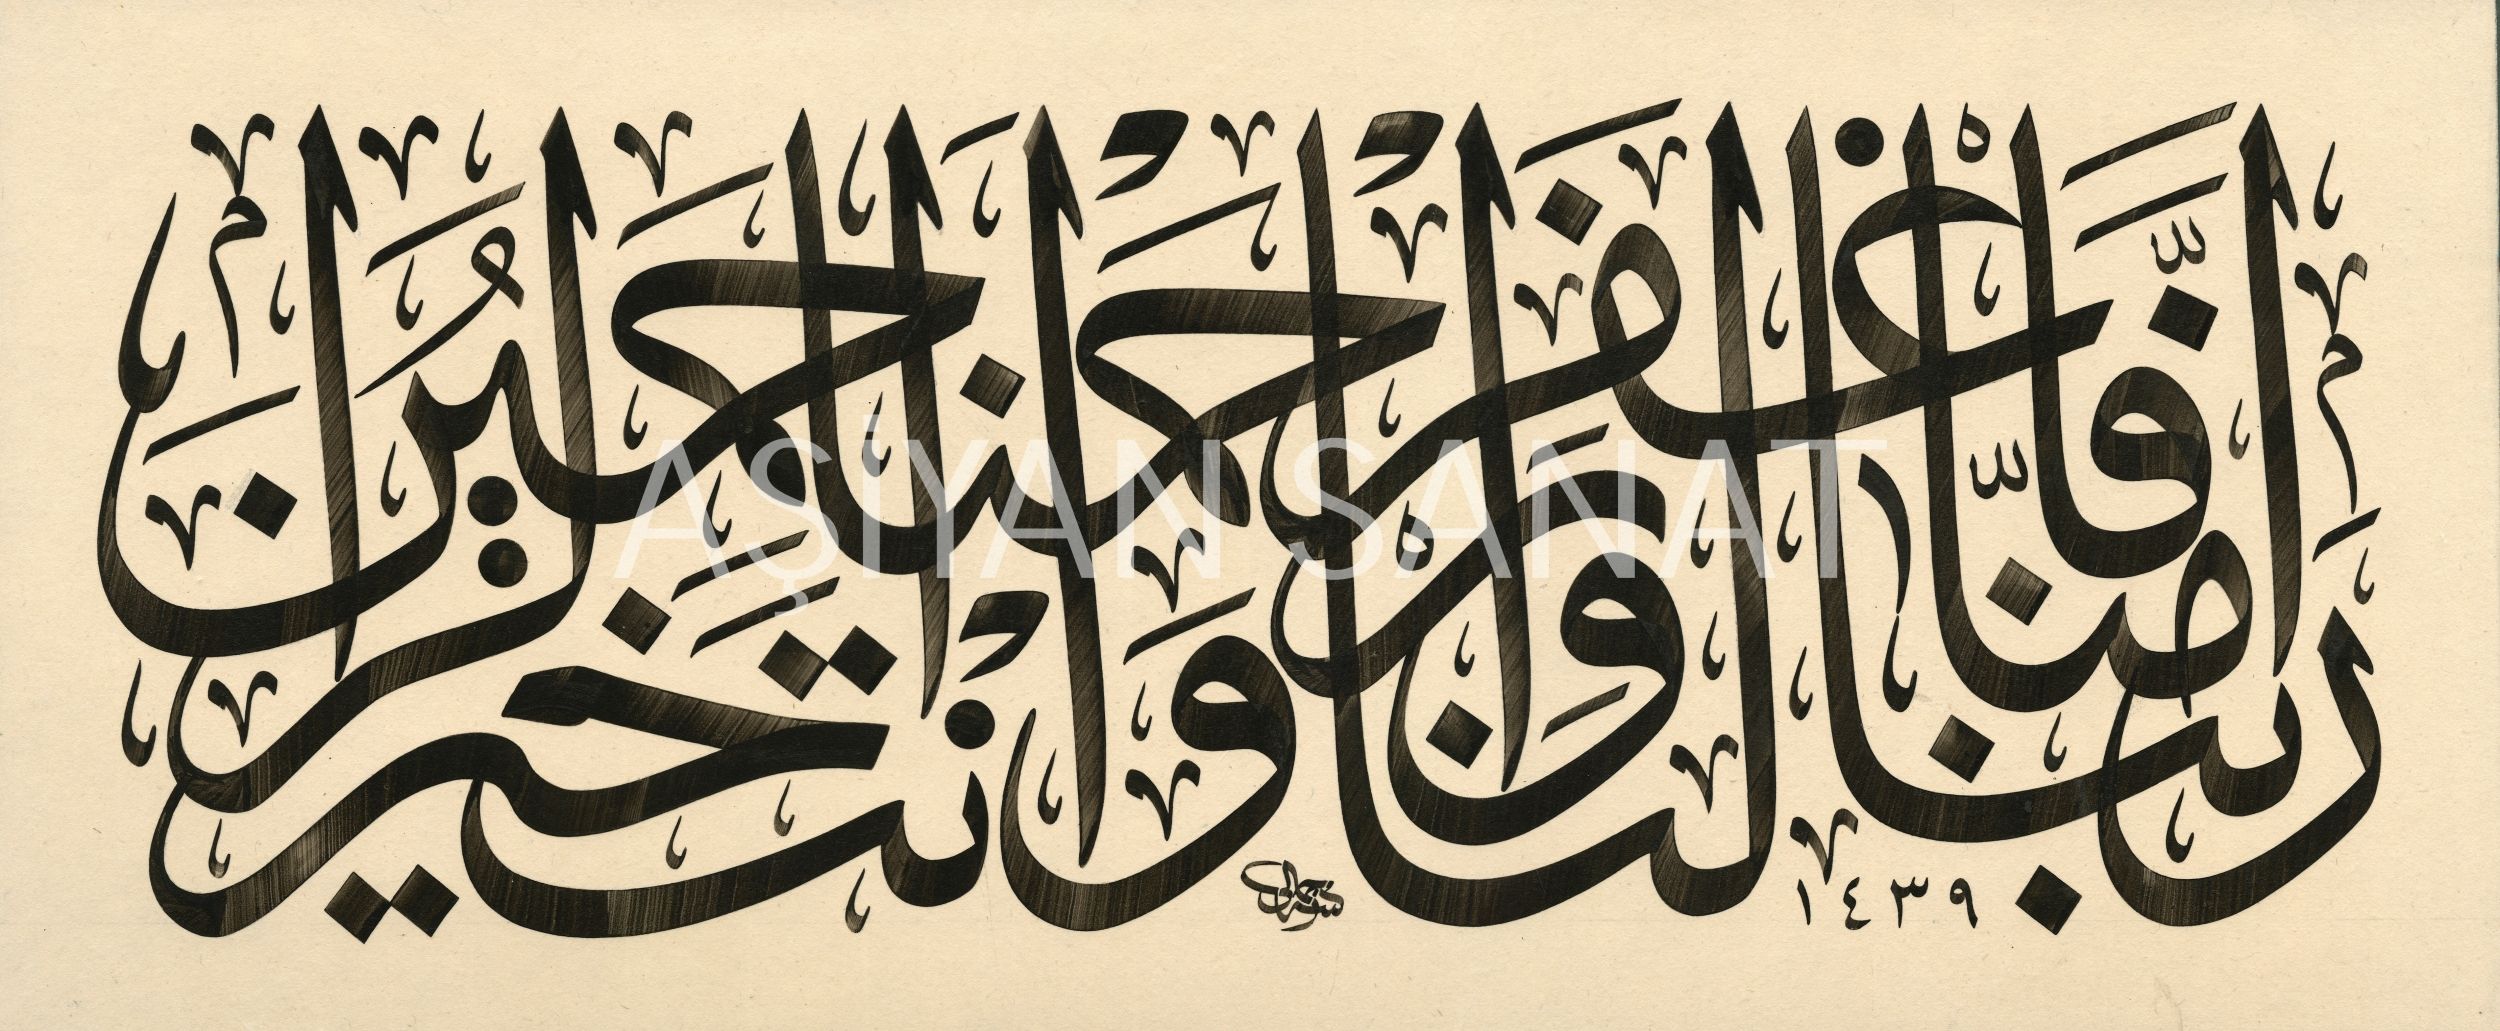 ربنا امنا فاغفر لنا وارحمنا وانت خير الراحمين
١٤٣٩
AŞİYAN SANAT